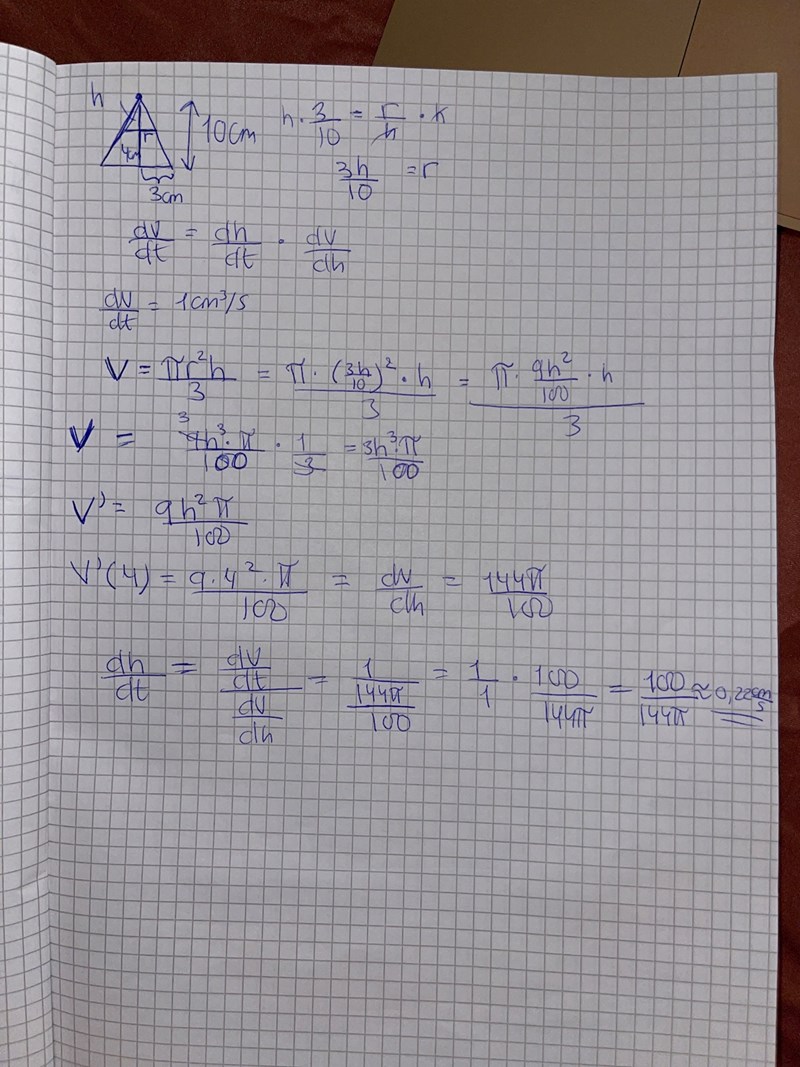 h
10cm
r
4cm
3cm
h · 3/10 = r/h · h
3h/10 = r
dV/dt = dh/dt · dV/dh
dV/dt = 1cm³/s
V = πr²h/3 = π · (3h/10)² · h/3 = π · 9h²/100 · h/3
V = 9h³ · π/100 · 1/3 = 3h³ · π/100
V' = 9h²π/100
V'(4) = 9 · 4² · π/100 = dV/dh = 144π/100
dh/dt = dV/dt/dV/dh = 1/144π/100 = 1/1 · 100/144π = 100/144π ≈ 0,22cm/s